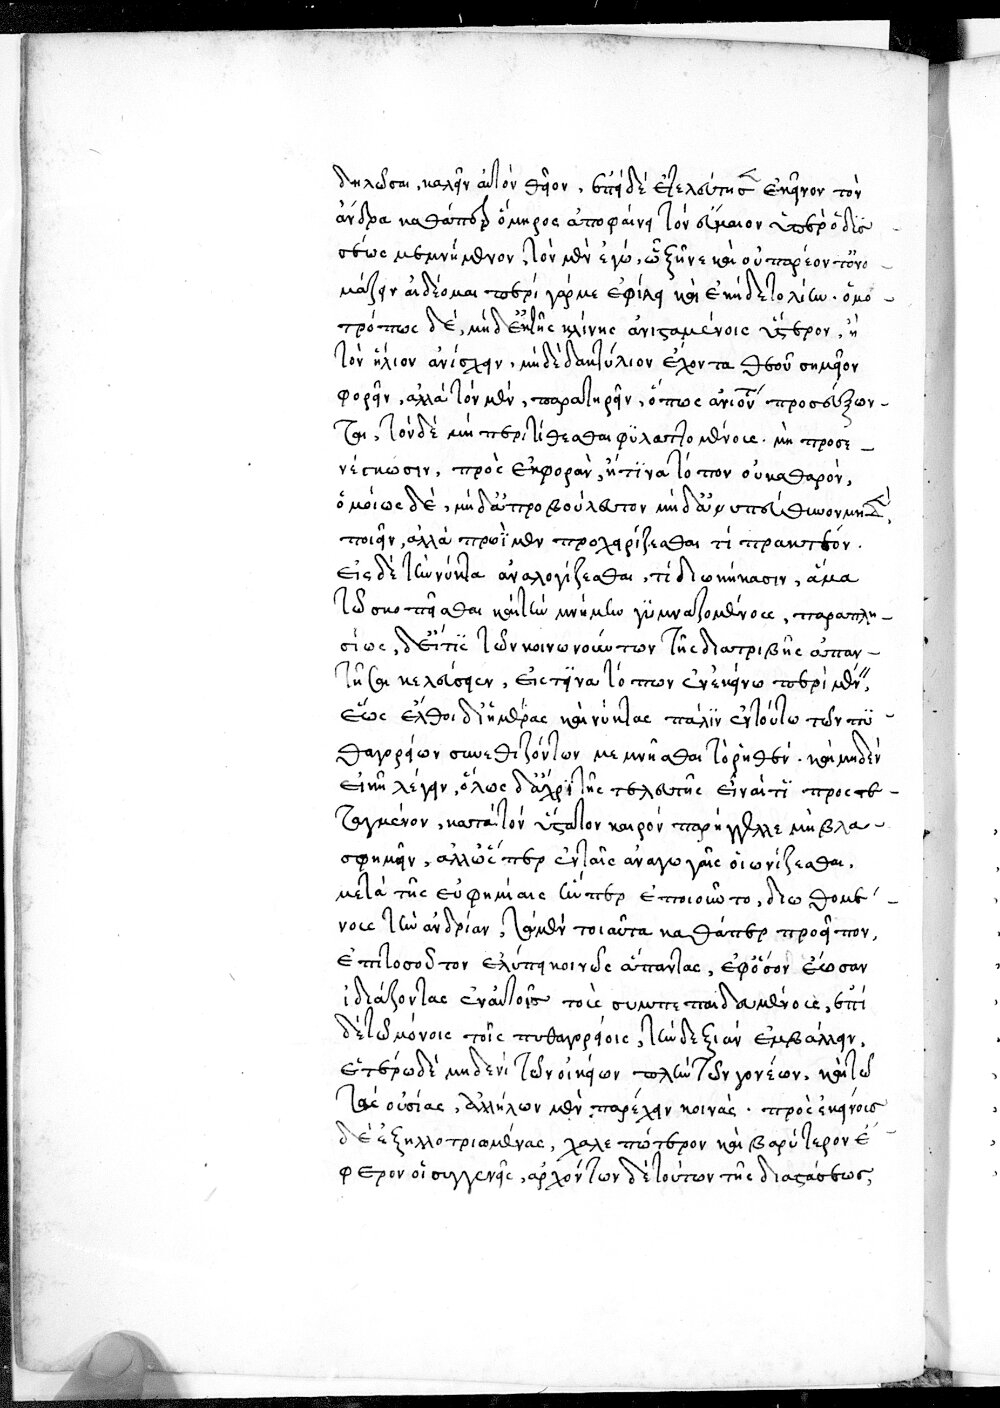 δηλῶσαι, καλεῖν αὐτὸν θεῖον, ἐπεὶ δὲ ἐτελεύτησεν ἐκεῖνον τὸν
ἄνδρα καθάπερ ὅμηρος ἀποφαίνει τὸν εὔμαιον ὑπὲρ ὀδυσ-
σέως μεμνημένον, τὸν μὲν ἐγὼ, ὦ ξεῖνε καὶ οὐ παρέοντ' ὀνο-
μάζειν αἰδέομαι περὶ γάρ με ἐφίλει καὶ ἐκήδετο λίην. ὁμο-
τρόπως δὲ, μηδ' ἐκ τῆς κλίνης ἀνισταμένοις ὕστερον, ἢ
τὸν ἥλιον ἀνίσχειν, μηδὲ δακτύλιον ἔχοντα θεοῦ σημεῖον
φορεῖν, ἀλλὰ τὸν μὲν, παρατηρεῖν, ὅπως ἀνιόντα προσεύξων-
ται, τὸν δὲ μὴ περιτίθεσθαι φυλαττομένοις. μὴ προσε-
νέγκωσιν, πρὸς ἐκφορὰν, ἤ τινα τόπον οὐ καθαρόν,
ὁμοίως δὲ, μηδ' ἀπροβούλευτον μηδ' ἀνυπεύθυνον μηδὲν,
ποιεῖν, ἀλλὰ πρωῒ μὲν προχειρίζεσθαι τί πρακτέον.
εἰς δὲ τὴν νύκτα ἀναλογίζεσθαι, τί διῳκήκασιν, ἅμα
τῷ σκοπεῖσθαι καὶ τὴν μνήμην γυμναζομένοις, παραπλη-
σίως, δὲ εἴ τις τῶν κοινωνούντων τῆς διατριβῆς ἀπαν-
τῆσαι κελεύσειεν, εἴς τινα τόπον ἐν ἐκείνῳ περιμένειν,
ἕως ἔλθοι δι' ἡμέρας καὶ νυκτὸς πάλιν ἐν τούτῳ τῶν πυ-
θαγορείων συνεθιζόντων μεμνῆσθαι τὸ ῥηθὲν. καὶ μηδὲν
εἰκῇ λέγειν, ὅλως δ' ἄχρι τῆς τελευτῆς εἶναί τι προστε-
ταγμένον, κατὰ τὸν ὕστατον καιρὸν παρήγγελλε μὴ βλα-
σφημεῖν, ἀλλ' ὥσπερ ἐν ταῖς ἀναγωγαῖς οἰωνίζεσθαι,
μετὰ τῆς εὐφημίας ἥνπερ ἐποιοῦντο, διωθουμέ-
νοις τὴν ἀνδρίαν, τὰ μὲν τοιαῦτα καθάπερ προεῖπον,
ἐπὶ τοσοῦτον ἐλύπει κοινῶς ἅπαντας, ἐφ' ὅσον ἑώρων
ἰδιάζοντας ἐν αὐτοῖς τοὺς συμπεπαιδευμένους, ἐπὶ
δὲ τῷ μόνοις τοῖς πυθαγορείοις, τὴν δεξιὰν ἐμβάλλειν,
ἑτέρῳ δὲ μηδενὶ τῶν οἰκείων πλὴν τῶν γονέων, καὶ τῷ
τὰς οὐσίας, ἀλλήλων μὲν παρέχειν κοινὰς. πρὸς ἐκείνους
δὲ ἐξηλλοτριωμένας, χαλεπώτερον καὶ βαρύτερον ἔ-
φερον οἱ συγγενεῖς, ἀρχόντων δὲ τούτων τῆς διαστάσεως,